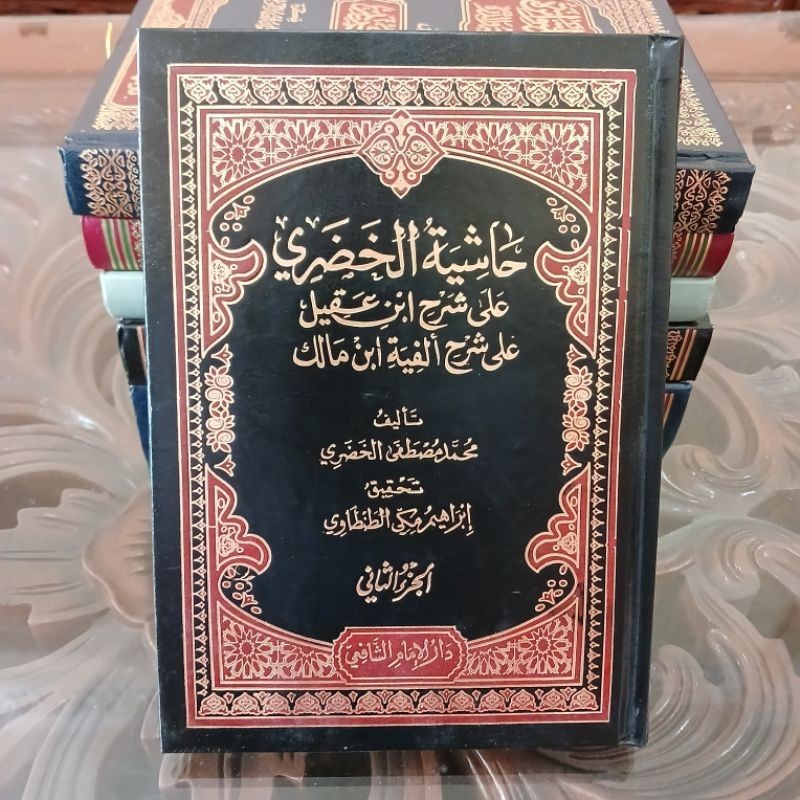 حَاشِيَةُ الخَضَرِي
عَلَى شَرْحِ ابْنِ عَقِيل
عَلى شَرْحِ ألفِيَةِ ابْنِ مَالِك
تَأليفُ
مُحَمَّد مُصْطَفَى الخَضَرِي
تَحقِيق
إبْرَاهِيم مَكِّي الطَنطَاوِي
الجُزءُ الثَّانِي
دَارُ الإمَامِ الشَّافِعِيِّ